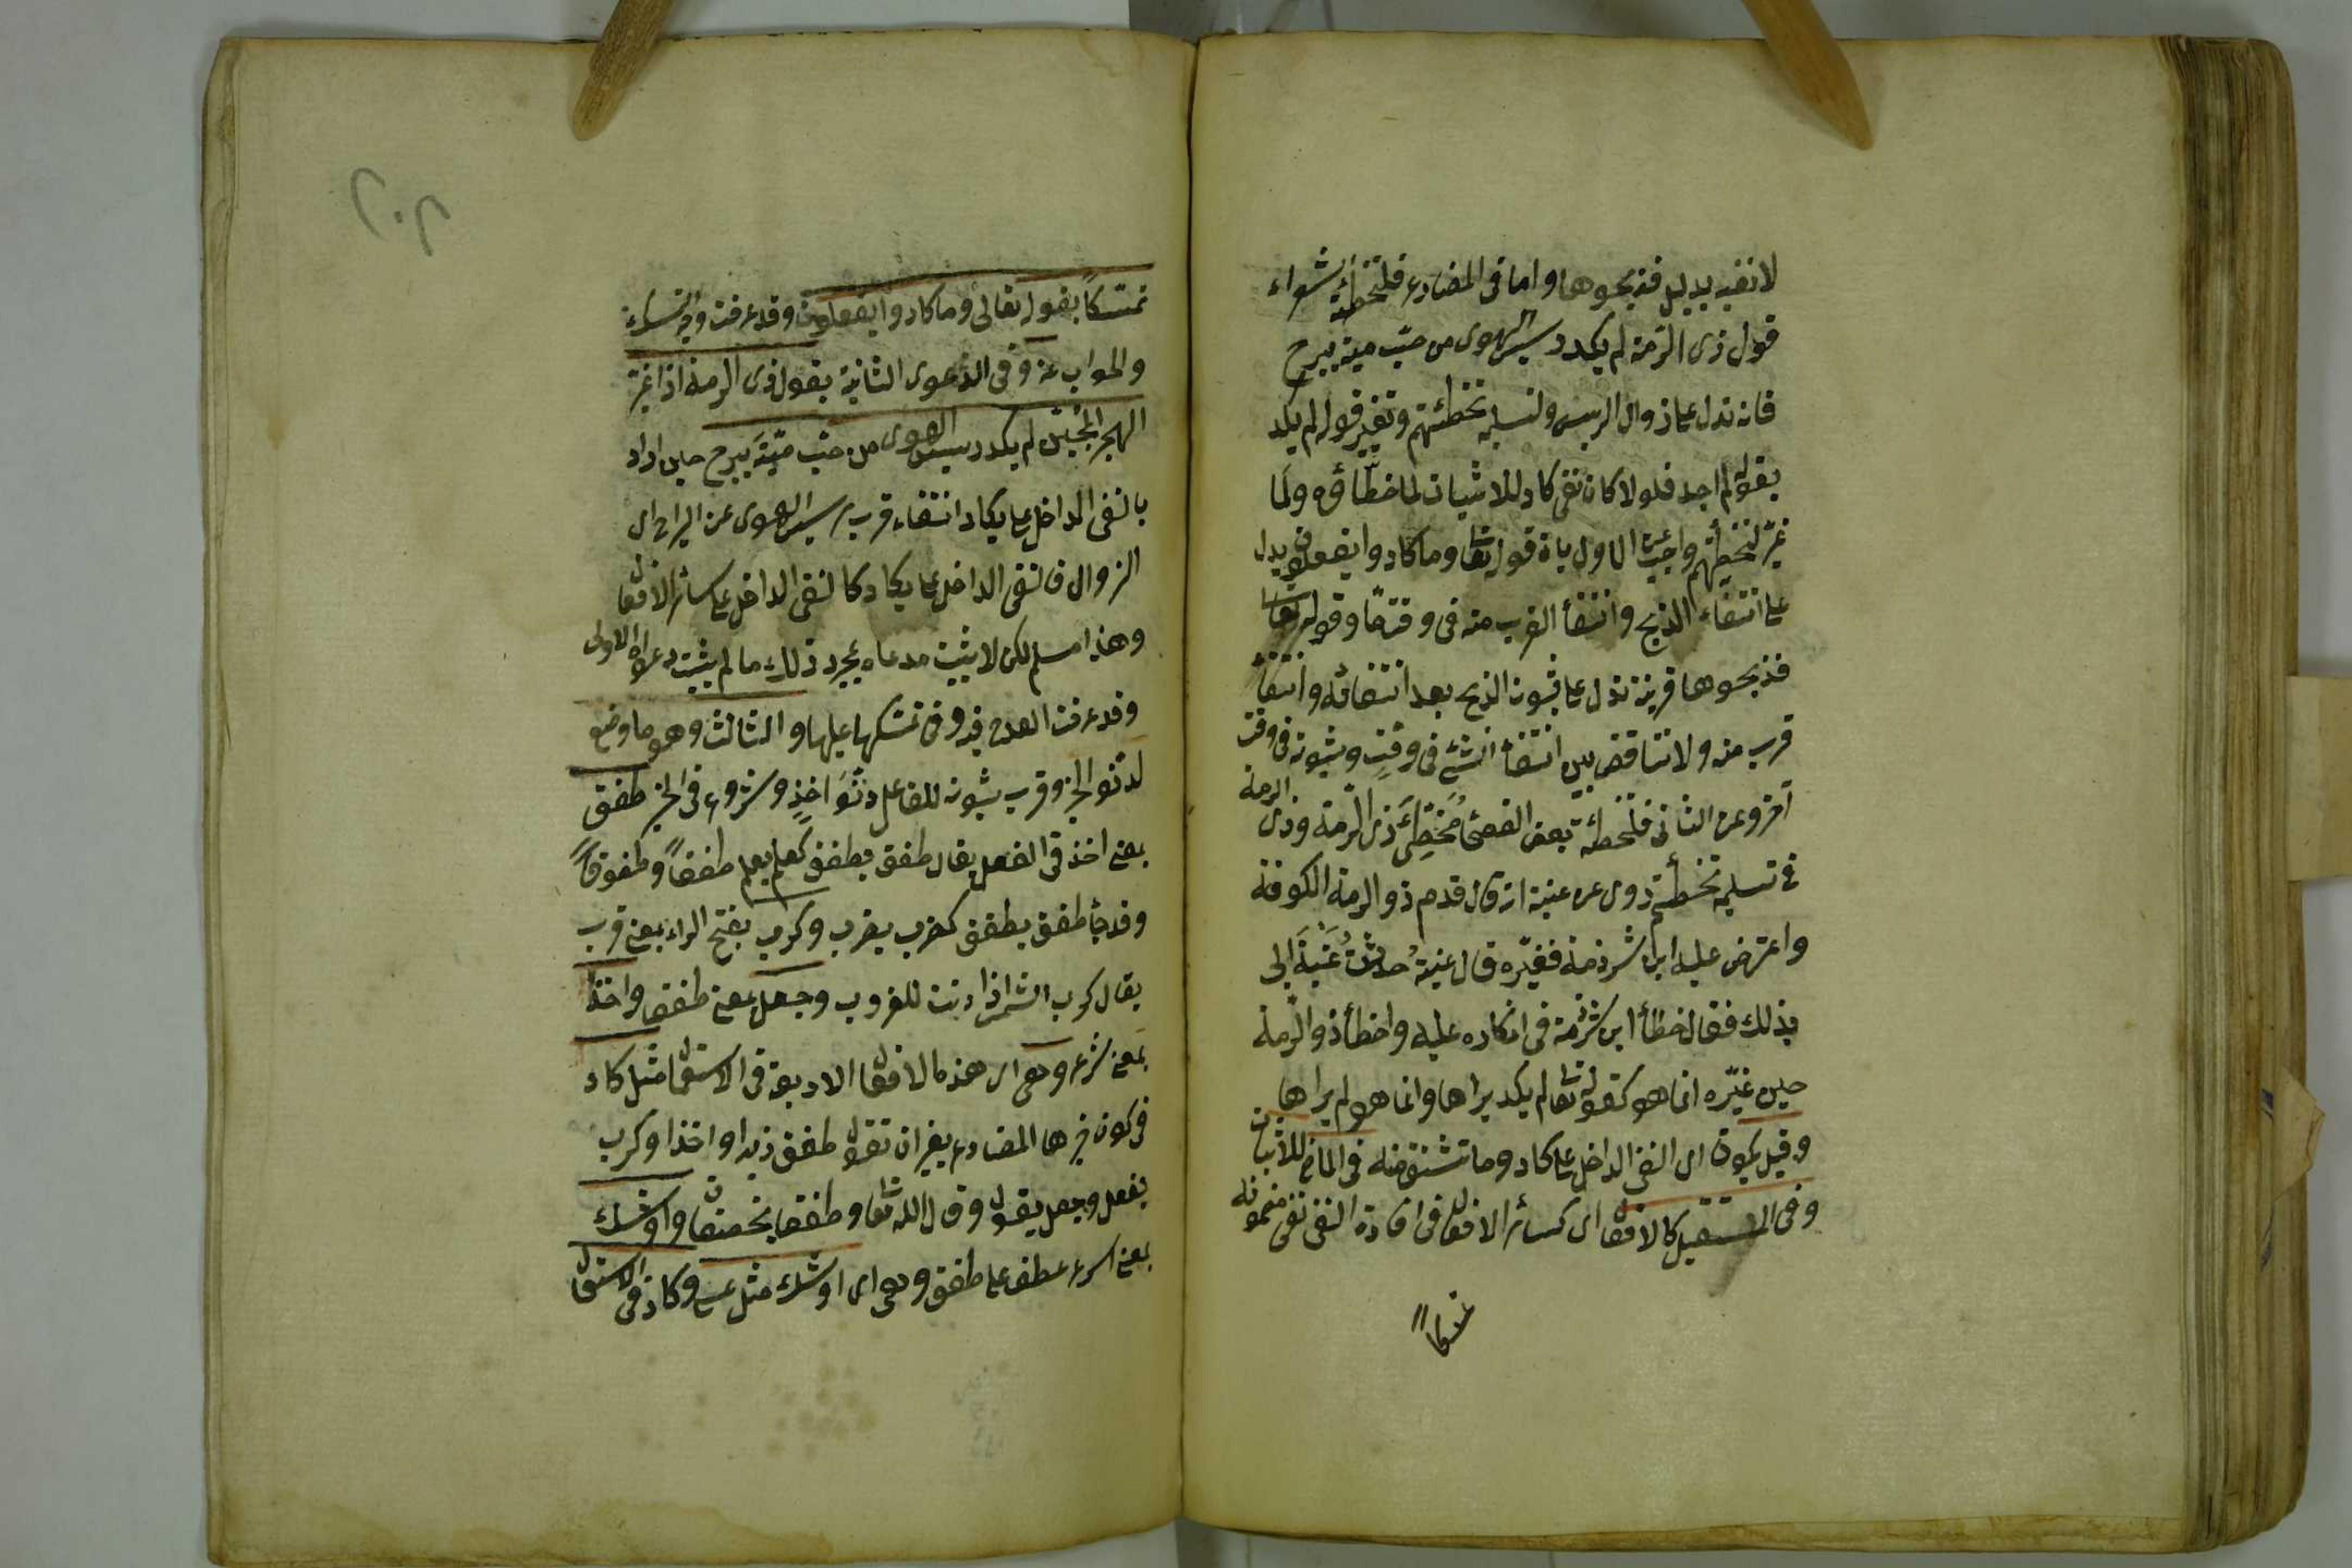 لا نفيه بدليل فذبحوها واما فى المضارع فلتخطئة الشعراء
قول ذى الرمة لم يكد رسيس الهوى من حبّ مية يبرح
فانه تدل على زوال الرسيس ولتسليمه تخطئتهم وتغيير قوله لم يكد
بقوله لم اجد فلولا كان نفى كاد للاثبات لما خطّاؤه ولما
غيّر لتخطئتهم واجيب عن الاول بان قوله تعا وما كادوا يفعلون يدل
على انتفاء الذبح وانتفأ القرب منه فى وقت مّا وقوله تعا
فذبحوها قرينة تدل على ثبوت الذبح بعد انتفائه وانتفأ
قرب منه ولا تناقض بين انتفأ الشئ فى وقتٍ وثبوته فى وقت
آخر وعن الثانى فلتخطئة بعض الفصحا مُخَطِّئ ذى الرمة وذى الرمة
فى تسليمه تخطئتهم روى عن عنبة انه قال قدم ذو الرمة الكوفة
واعترض عليه ابن شبرمة فغيّره قال عنبة حدثتُ عَنبةَ ابى
بذلك فقال اخطأ ابن شبرمة فى انكاره عليه واخطأ ذو الرمة
حين غيّره انما هو كقوله تعا لم يكد يراها وانما هو لم يراها
وقيل يكون اى النفى الداخل على كاد وما تشتق منه فى الماضى للاثبات
وفى المستقبل كالافعال اى كسائر الافعال فى افادة النفى نفى مضمونه
تمسكاً
تمسّكاً بقوله تعالى وما كادوا يفعلون وقد عرفت وجه التمسك
والجواب عنه وفى الدعوى الثانية بقول ذى الرمة اذا غيّر
الهجر المحبّين لم يكد رسيس الهوى من حبّ ميّةَ يبرح حين اراد
بالنفى الداخل على يكاد انتفاء قرب رسيس الهوى عن البراح اى
الزوال فالنفى الداخل على يكاد كالنفى الداخل على سائر الافعال
وهذا مسلم لكن لا يثبت مدعاه بمجرد ذلك ما لم يثبت دعواه الاولى
وقد عرفت القدح فيه وفى تمسكها عليها والثالث وهو ما وضع
لدنو الخبر وقرب ثبوته للفاعل دُنُوَ اخذٍ وشروع فى الخبر طفق
بمعنى اخذ فى الفعل يقال طفق يطفق كعلم يعلم طفقاً وطفوقاً
وقد جأ طفق يطفق كضرب يضرب وكرب بفتح الراء بمعنى قرب
يقال كرب الشمس اذا دنت للغروب وجعل بمعنى طفق واخذ
بمعنى شرع وهى اى هذه الافعال الاربعة فى الاستعمال مثل كاد
فى كون خبرها المضارع بغير ان تقول طفق زيد او اخذ او كرب
يفعل وجعل يقول وقال الله تعا وطفقا يخصفان واوشك
بمعنى اسرع عطف على طفق وهى اى اوشك مثل عسى وكاد فى الاستعمال